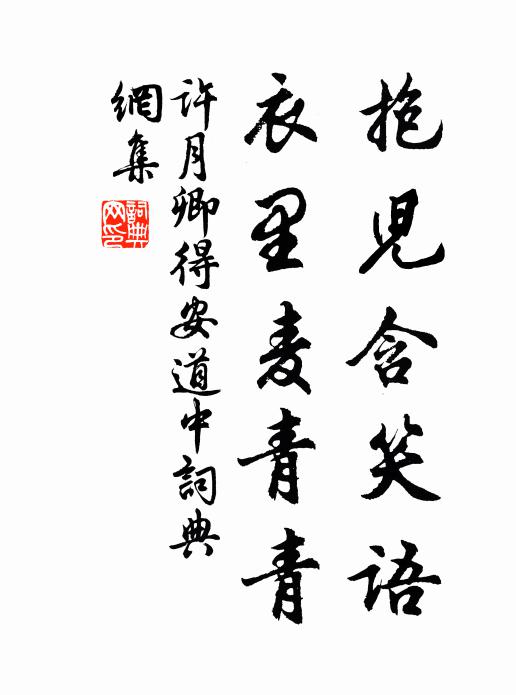 抱児含笑語
衣里麦青青
許月卿得安道中詞典
網集
詞典
网印